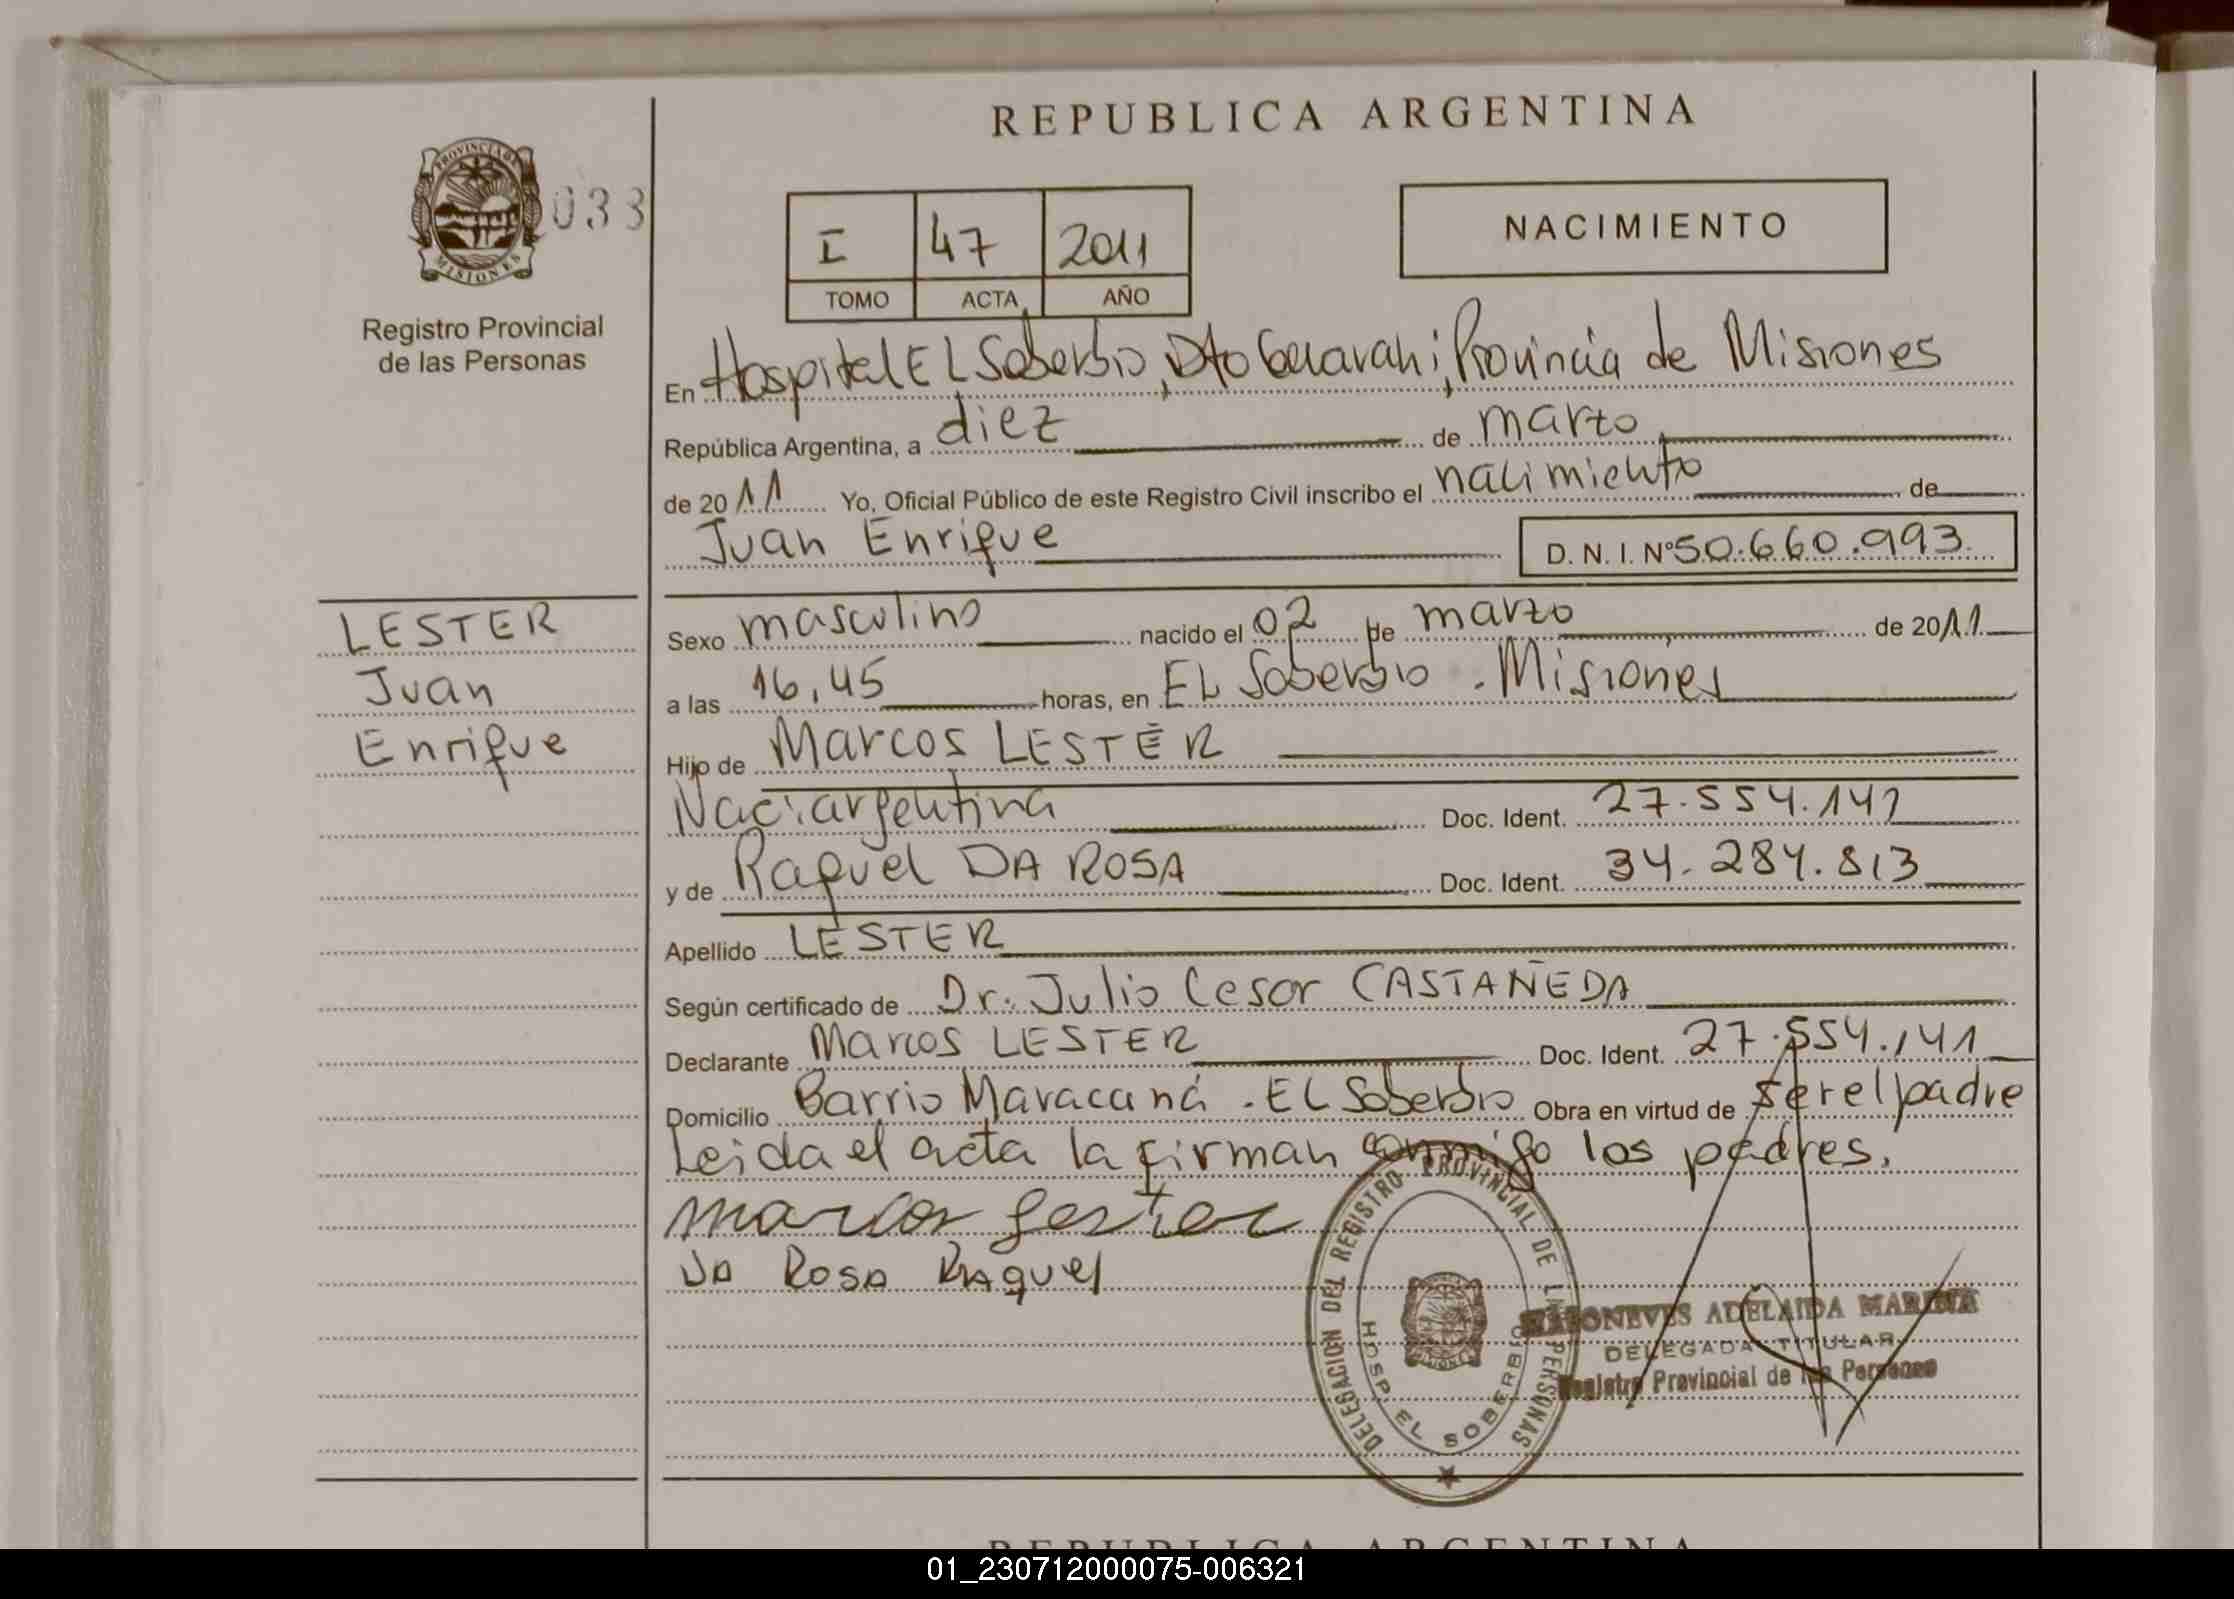 REPUBLICA ARGENTINA
PROVINCIA DE
MISIONES
033
Registro Provincial
de las Personas
I 47 2011
TOMO ACTA AÑO
NACIMIENTO
En Hospital EL Soberbio, Dto Guarani, Provincia de Misiones
República Argentina, a diez de marzo
de 2011 Yo, Oficial Público de este Registro Civil inscribo el nacimiento de
Juan Enrique D. N. I. Nº 50.660.993
LESTER
Juan
Enrique
Sexo masculino nacido el 02 de marzo de 2011
a las 16,45 horas, en EL Soberbio . Misiones
Hijo de Marcos LESTER
Nac: argentina Doc. Ident. 27.554.141
y de Raquel DA ROSA Doc. Ident. 34.284.813
Apellido LESTER
Según certificado de Dr. Julio Cesar CASTAÑEDA
Declarante Marcos LESTER Doc. Ident. 27.554.141
Domicilio Barrio Maracaná . EL Soberbio Obra en virtud de ser el padre
Leida el acta la firman conmigo los padres.
marcos Lester
Da Rosa Raquel
DELEGACION DEL REGISTRO PROVINCIAL DE LAS PERSONAS
HOSP. EL SOBERBIO
ADELAIDA MARINA
DELEGADA TITULAR
Registro Provincial de las Personas
REPUBLICA ARGENTINA
01_230712000075-006321